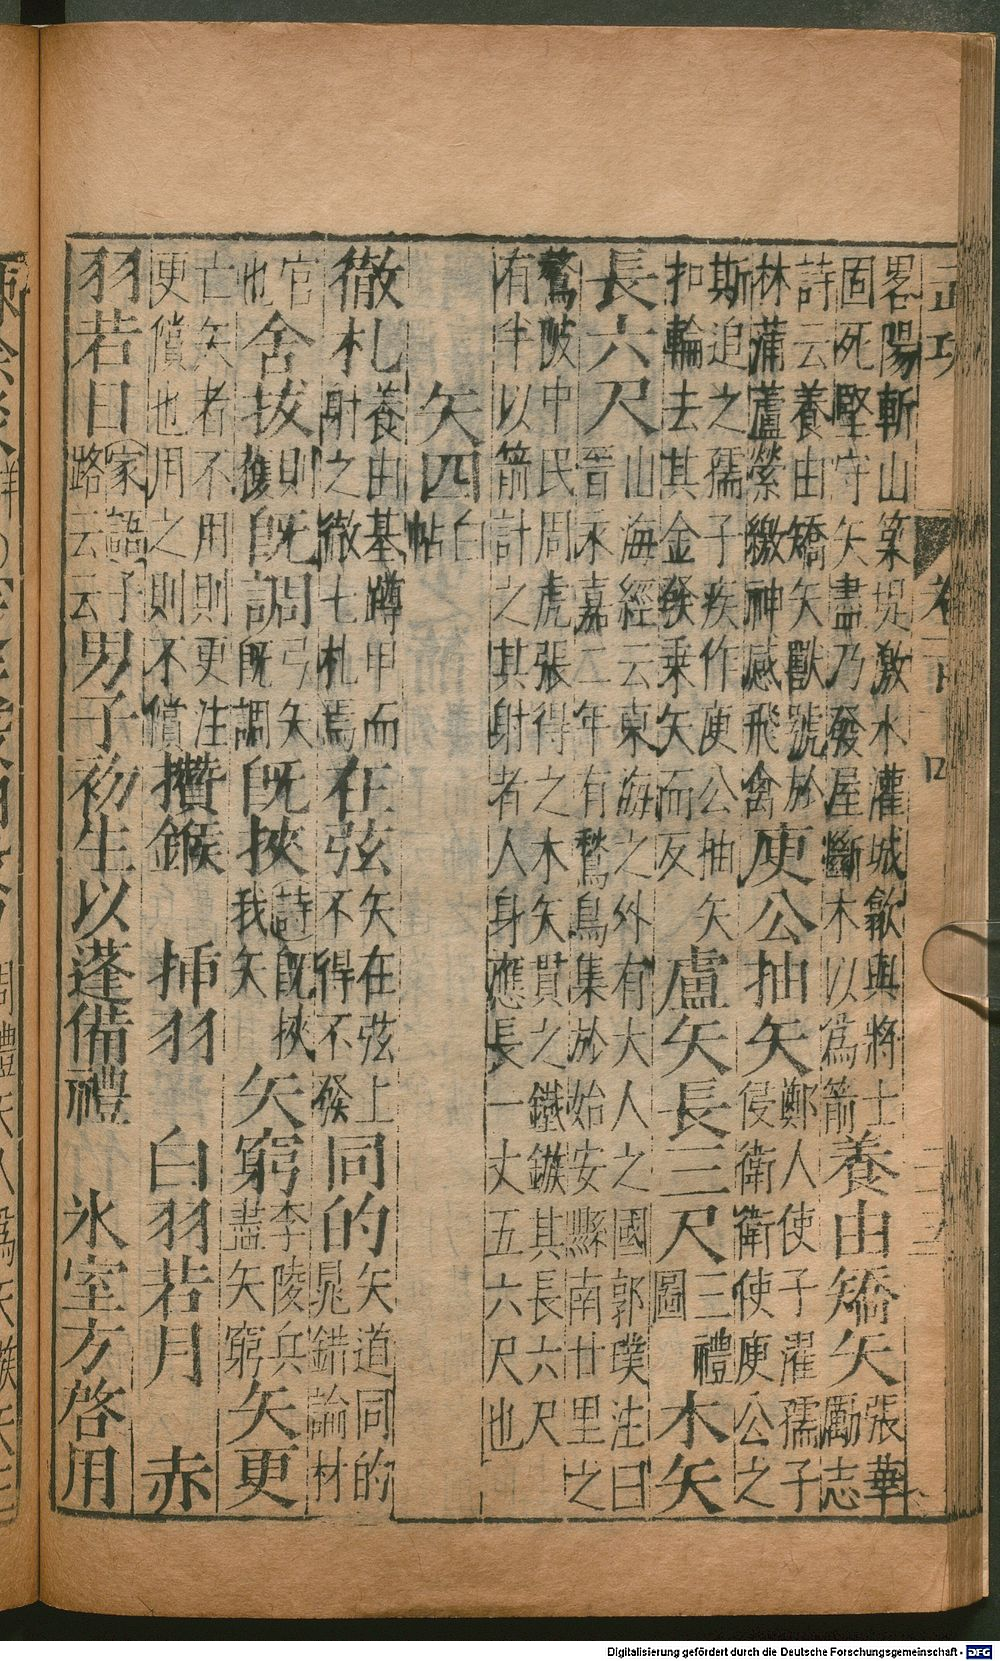 武功 卷一百四
畧陽斬山築堤激水灌城歆與將士
固死堅守矢盡乃發屋斷木以為箭
養由矯矢
張華
勵志
詩云養由矯矢獸號於
林蒲蘆縈繳神感飛禽
庾公抽矢
鄭人使子濯孺子
侵衛衛使庾公之
斯追之孺子疾作庾公抽矢
扣輪去其金發乘矢而反
盧矢長三尺
三禮
圖
木矢
長六尺
山海經云東海之外有大人之國郭璞注曰
晉永嘉二年有鶖鳥集於始安縣南廿里之
鶖陂中民周虎張得之木矢貫之鐵鏃其長六尺
有半以箭計之其射者人身應長一丈五六尺也
矢四
白
帖
徹札
養由基蹲甲而
射之徹七札焉
在弦
矢在弦上
不得不發
同的
矢道同的
晁錯論材
官
也
舍拔
則
獲
既調
弓矢
既調
既挾
詩既挾
我矢
矢窮
李陵兵
盡矢窮
矢更
亡矢者不用則更注
更償也用之則不償
攢鍭 揷羽 白羽若月 赤
羽若日
家語子
路云云
男子初生以蓬備禮 氷室方啓用
Digitalisierung gefördert durch die Deutsche Forschungsgemeinschaft - DFG